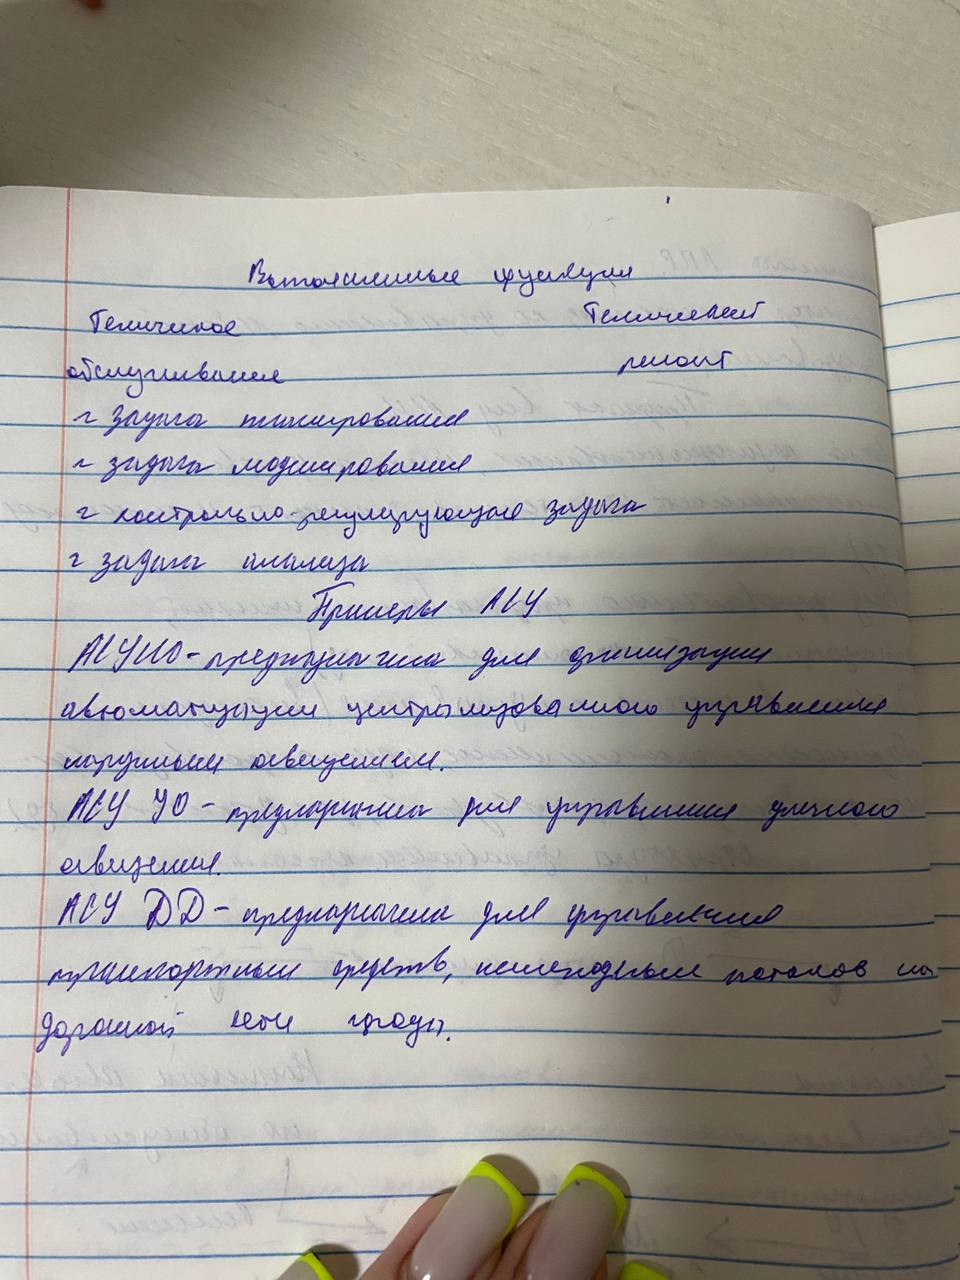 Выполняемые функции
Техническое Технический
обслуживание ремонт
- задача планирования
- задача моделирования
- контрольно-регулирующая задача
- задача анализа
Примеры АСУ
АСУНО - предназначена для организации
автоматизации централизованного управления
наружным освещением.
АСУ УО - предназначена для управления уличного
освещения.
АСУ ДД - предназначена для управления
транспортных средств, пешеходных потоков на
дорожной сети города.